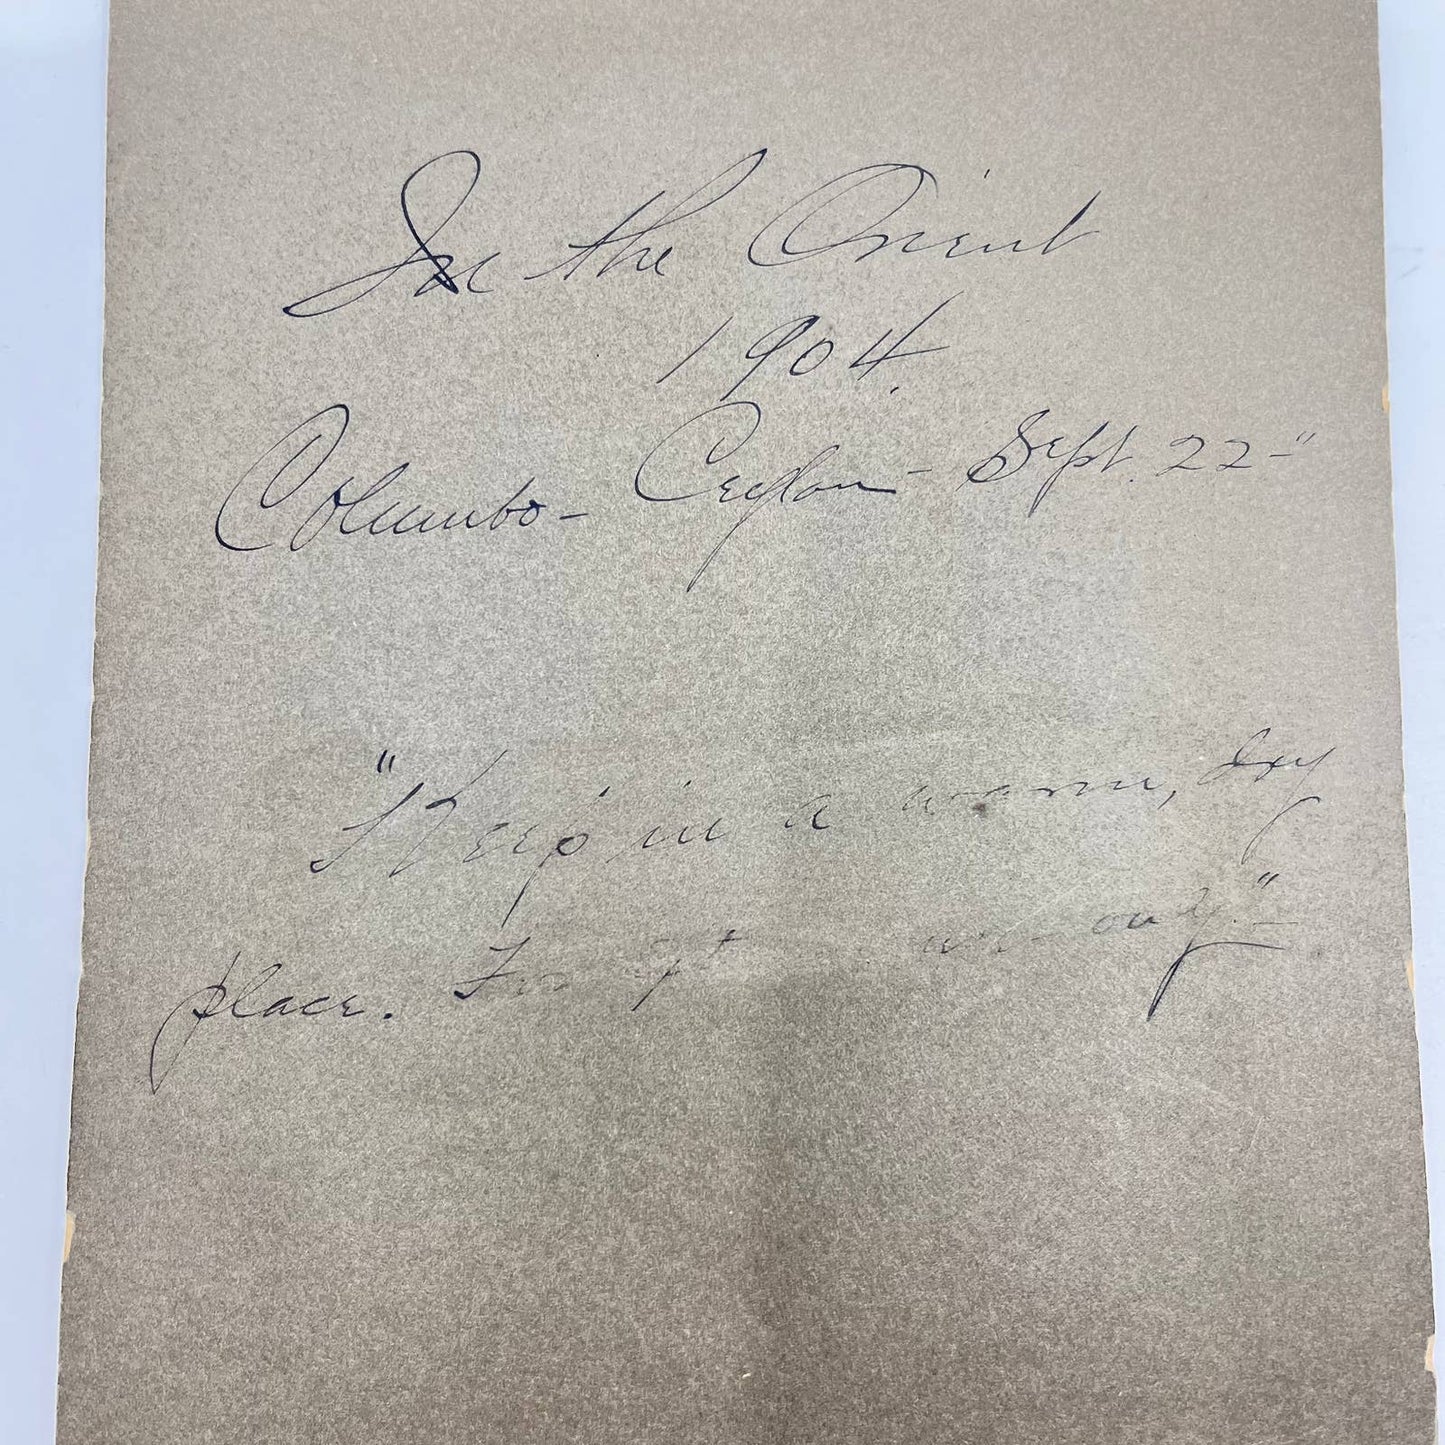 In the Orient
1904.
Columbo - Ceylon - Sept. 22 - "
"Keep in a warm, dry
place. only." -